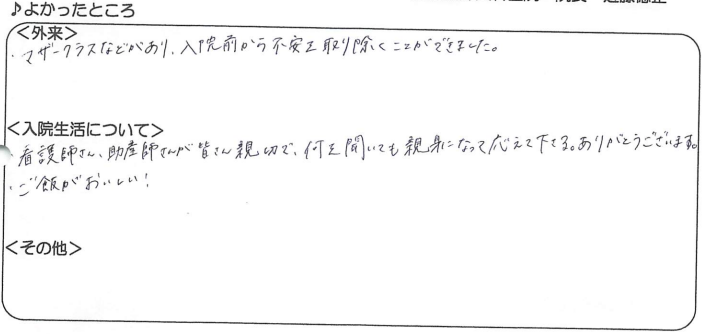 ♪よかったところ
＜外来＞
・マザークラスなどがあり、入院前から不安を取り除くことができました。
＜入院生活について＞
・看護師さん、助産師さんが皆さん親切で、何を聞いても親身になって応えて下さる。ありがとうございます。
・ご飯がおいしい！
＜その他＞